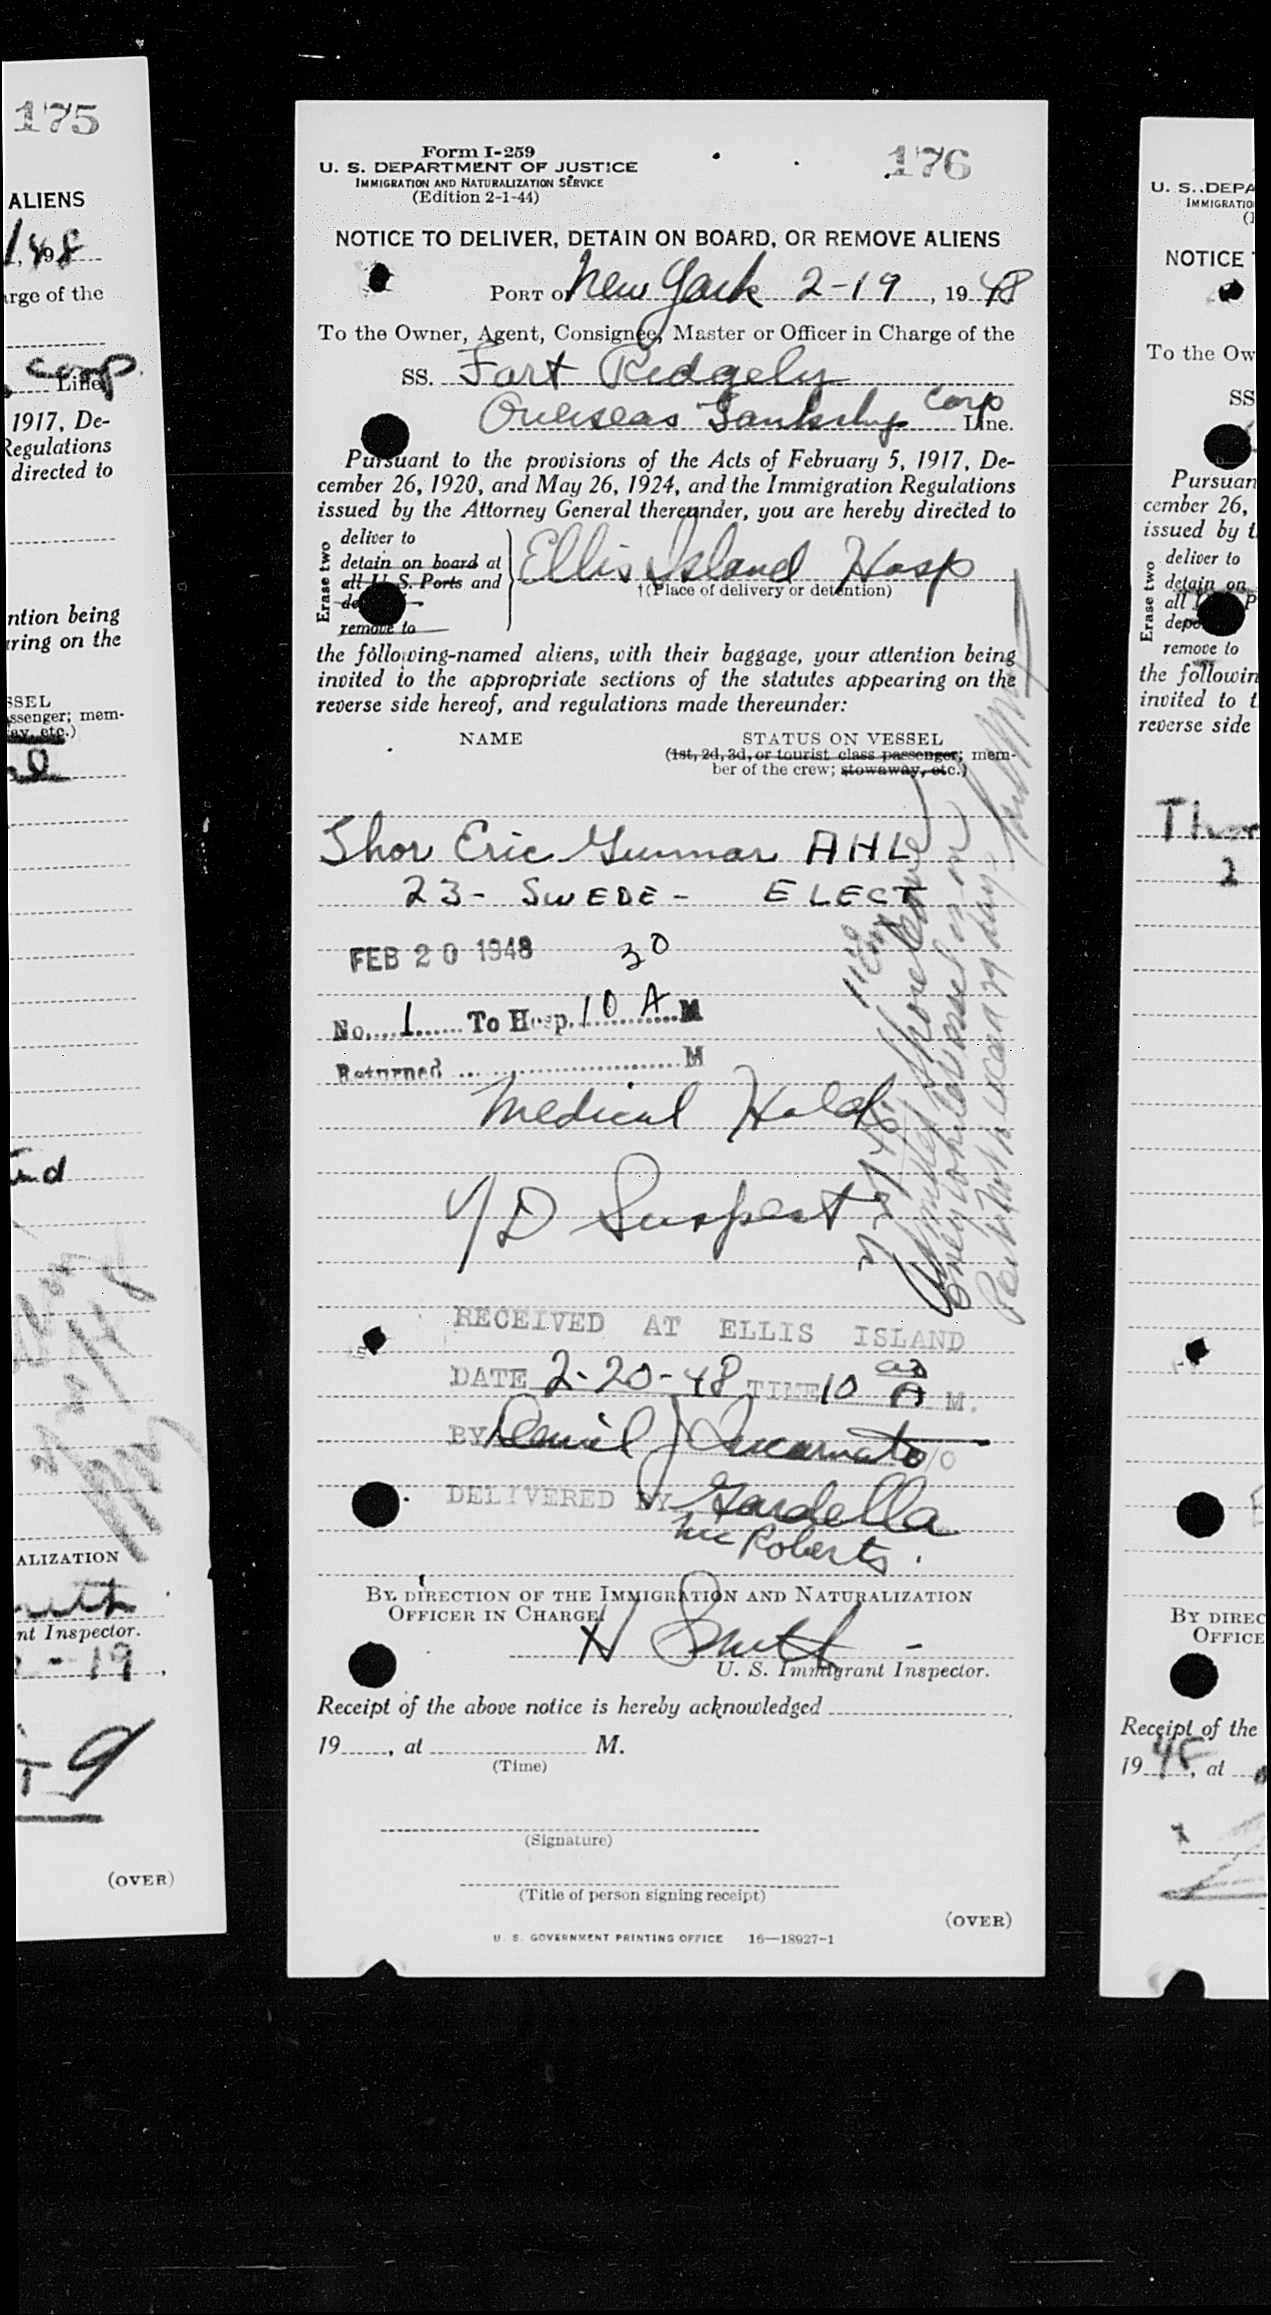 175
ALIENS
, 1948
arge of the
Corp.
Line
1917, De-
Regulations
directed to
ntion being
ring on the
SSEL
ssenger; mem-
ay, etc.)
ALIZATION
nt Inspector.
-19,
(OVER)
Form I-259
U. S. DEPARTMENT OF JUSTICE
IMMIGRATION AND NATURALIZATION SERVICE
(Edition 2-1-44)
176
NOTICE TO DELIVER, DETAIN ON BOARD, OR REMOVE ALIENS
PORT OF New York 2-19, 1948
To the Owner, Agent, Consignee, Master or Officer in Charge of the
SS. Fort Ridgely
Overseas Tankship Corp Line.
Pursuant to the provisions of the Acts of February 5, 1917, De-
cember 26, 1920, and May 26, 1924, and the Immigration Regulations
issued by the Attorney General thereunder, you are hereby directed to
Erase two
deliver to
detain on board at
all U. S. Ports and
remove to
Ellis Island Hosp
†(Place of delivery or detention)
the following-named aliens, with their baggage, your attention being
invited to the appropriate sections of the statutes appearing on the
reverse side hereof, and regulations made thereunder:
NAME STATUS ON VESSEL
(1st, 2d, 3d, or tourist class passenger; mem-
ber of the crew; stowaway, etc.)
Thor Eric Gunnar AHL
23- SWEDE- ELECT
FEB 20 1948 30
No. 1 To Hosp. 10 A M
Returned M
Medical Hold
V/D Suspect
Admitted shore leave
only while vessel in
RECEIVED AT ELLIS ISLAND
DATE 2-20-48 TIME 10 00 A M.
BY Daniel J Incarnato
DELIVERED BY Gardella
McRoberts.
BY DIRECTION OF THE IMMIGRATION AND NATURALIZATION
OFFICER IN CHARGE.
H Smith
U. S. Immigrant Inspector.
Receipt of the above notice is hereby acknowledged
19, at M.
(Time)
(Signature)
(Title of person signing receipt)
(OVER)
U. S. GOVERNMENT PRINTING OFFICE 16—18927-1
U. S. DEPA
IMMIGRATIO
NOTICE
To the Ow
SS
Pursuan
cember 26,
issued by t
Erase two
deliver to
detain on
all P
remove to
the followin
invited to t
reverse side
BY DIREC
OFFICE
Receipt of the
1948, at